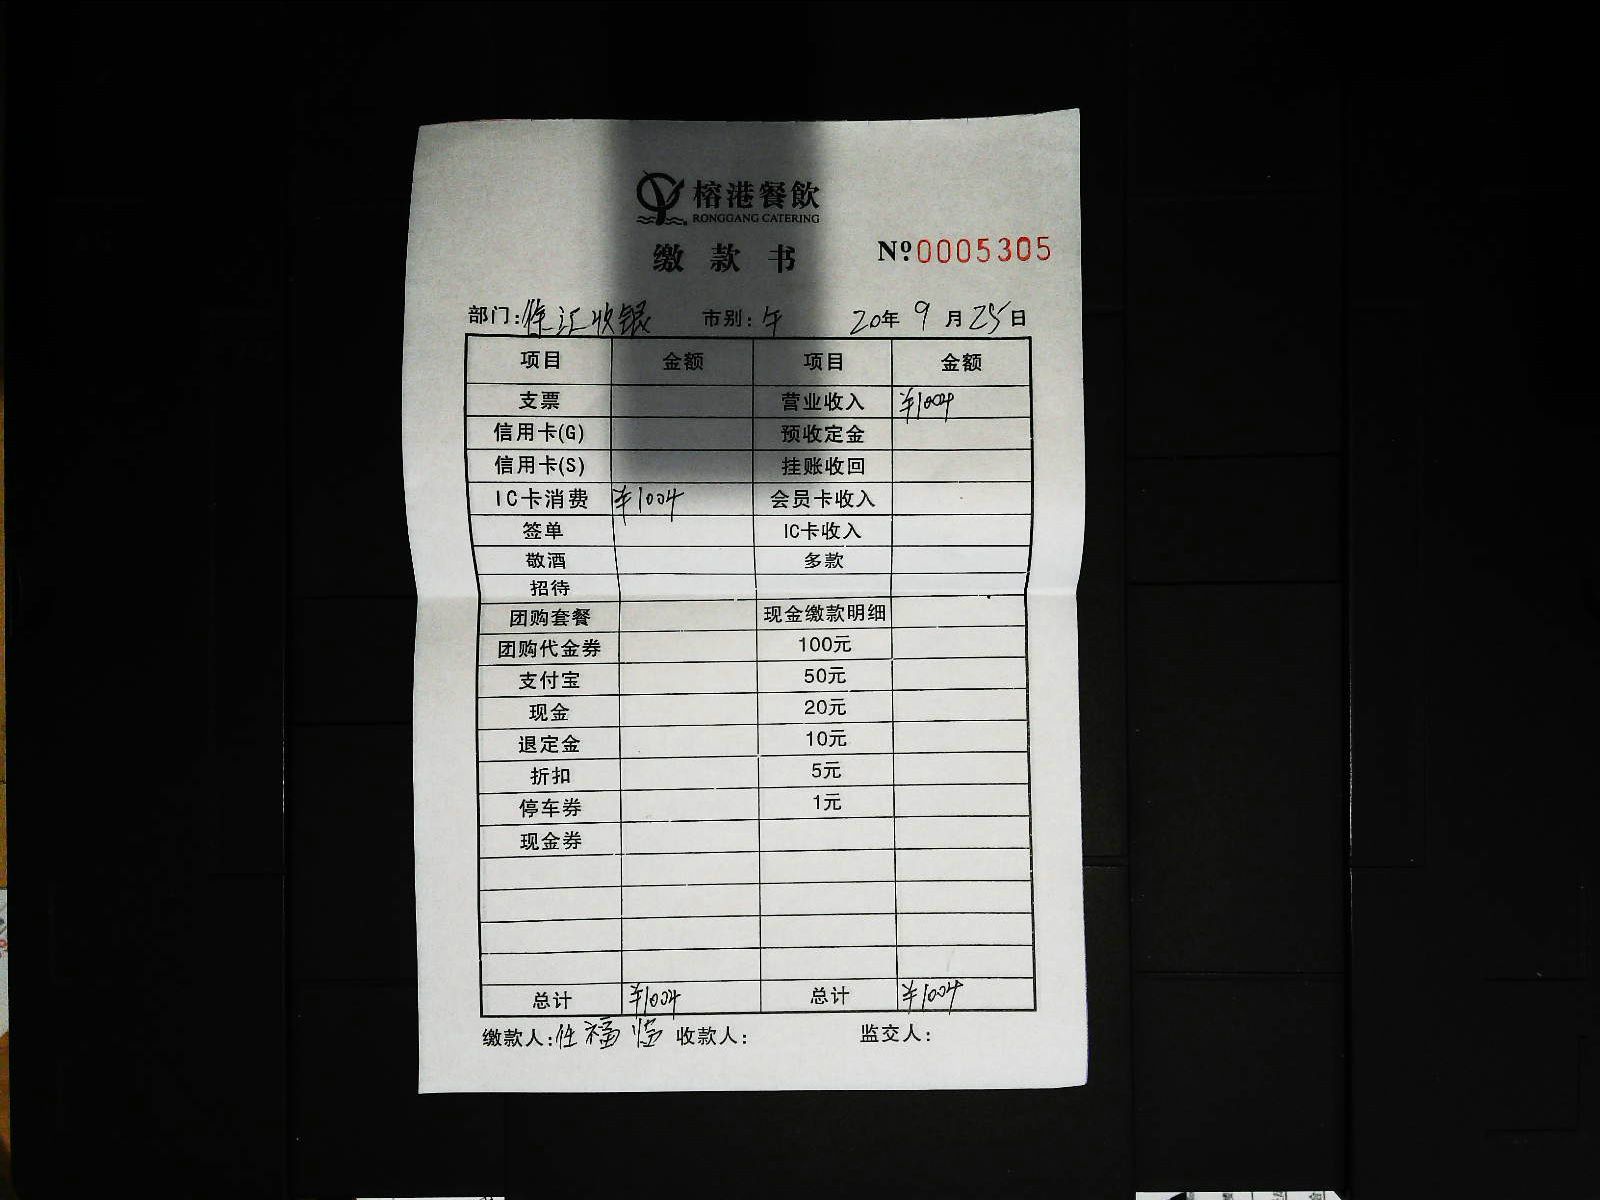 榕港餐飲
RONGGANG CATERING
缴款书
№0005305
部门:徐汇收银 市别:午 20年9月25日
项目 金额 项目 金额
支票 营业收入 ¥1004
信用卡(G) 预收定金
信用卡(S) 挂账收回
IC卡消费 ¥1004 会员卡收入
签单 IC卡收入
敬酒 多款
招待
团购套餐 现金缴款明细
团购代金券 100元
支付宝 50元
现金 20元
退定金 10元
折扣 5元
停车券 1元
现金券
总计 ¥1004 总计 ¥1004
缴款人:任福 收款人: 监交人: